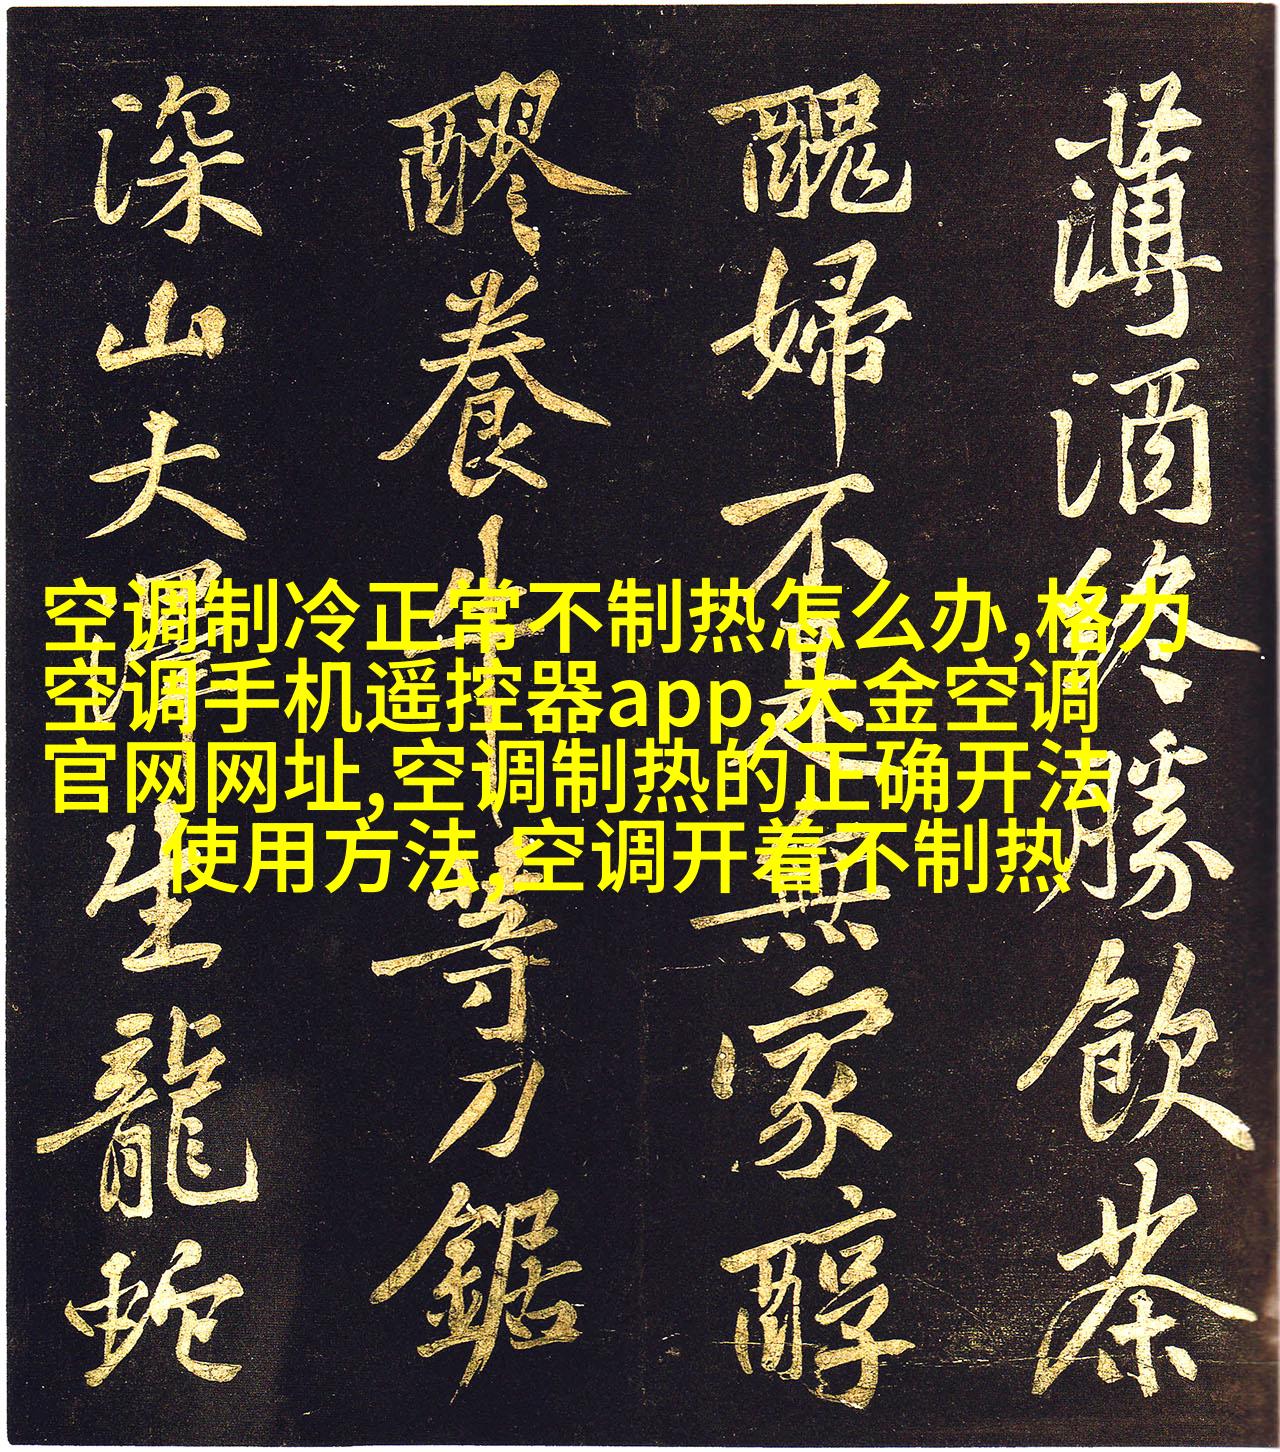 薄酒終勝飲茶
醜婦不是無家醇
醪養牛等刀鋸
深山大澤生龍蛇
空调制冷正常不制热怎么办,格力
空调手机遥控器app,大金空调
官网网址,空调制热的正确开法
使用方法,空调开着不制热